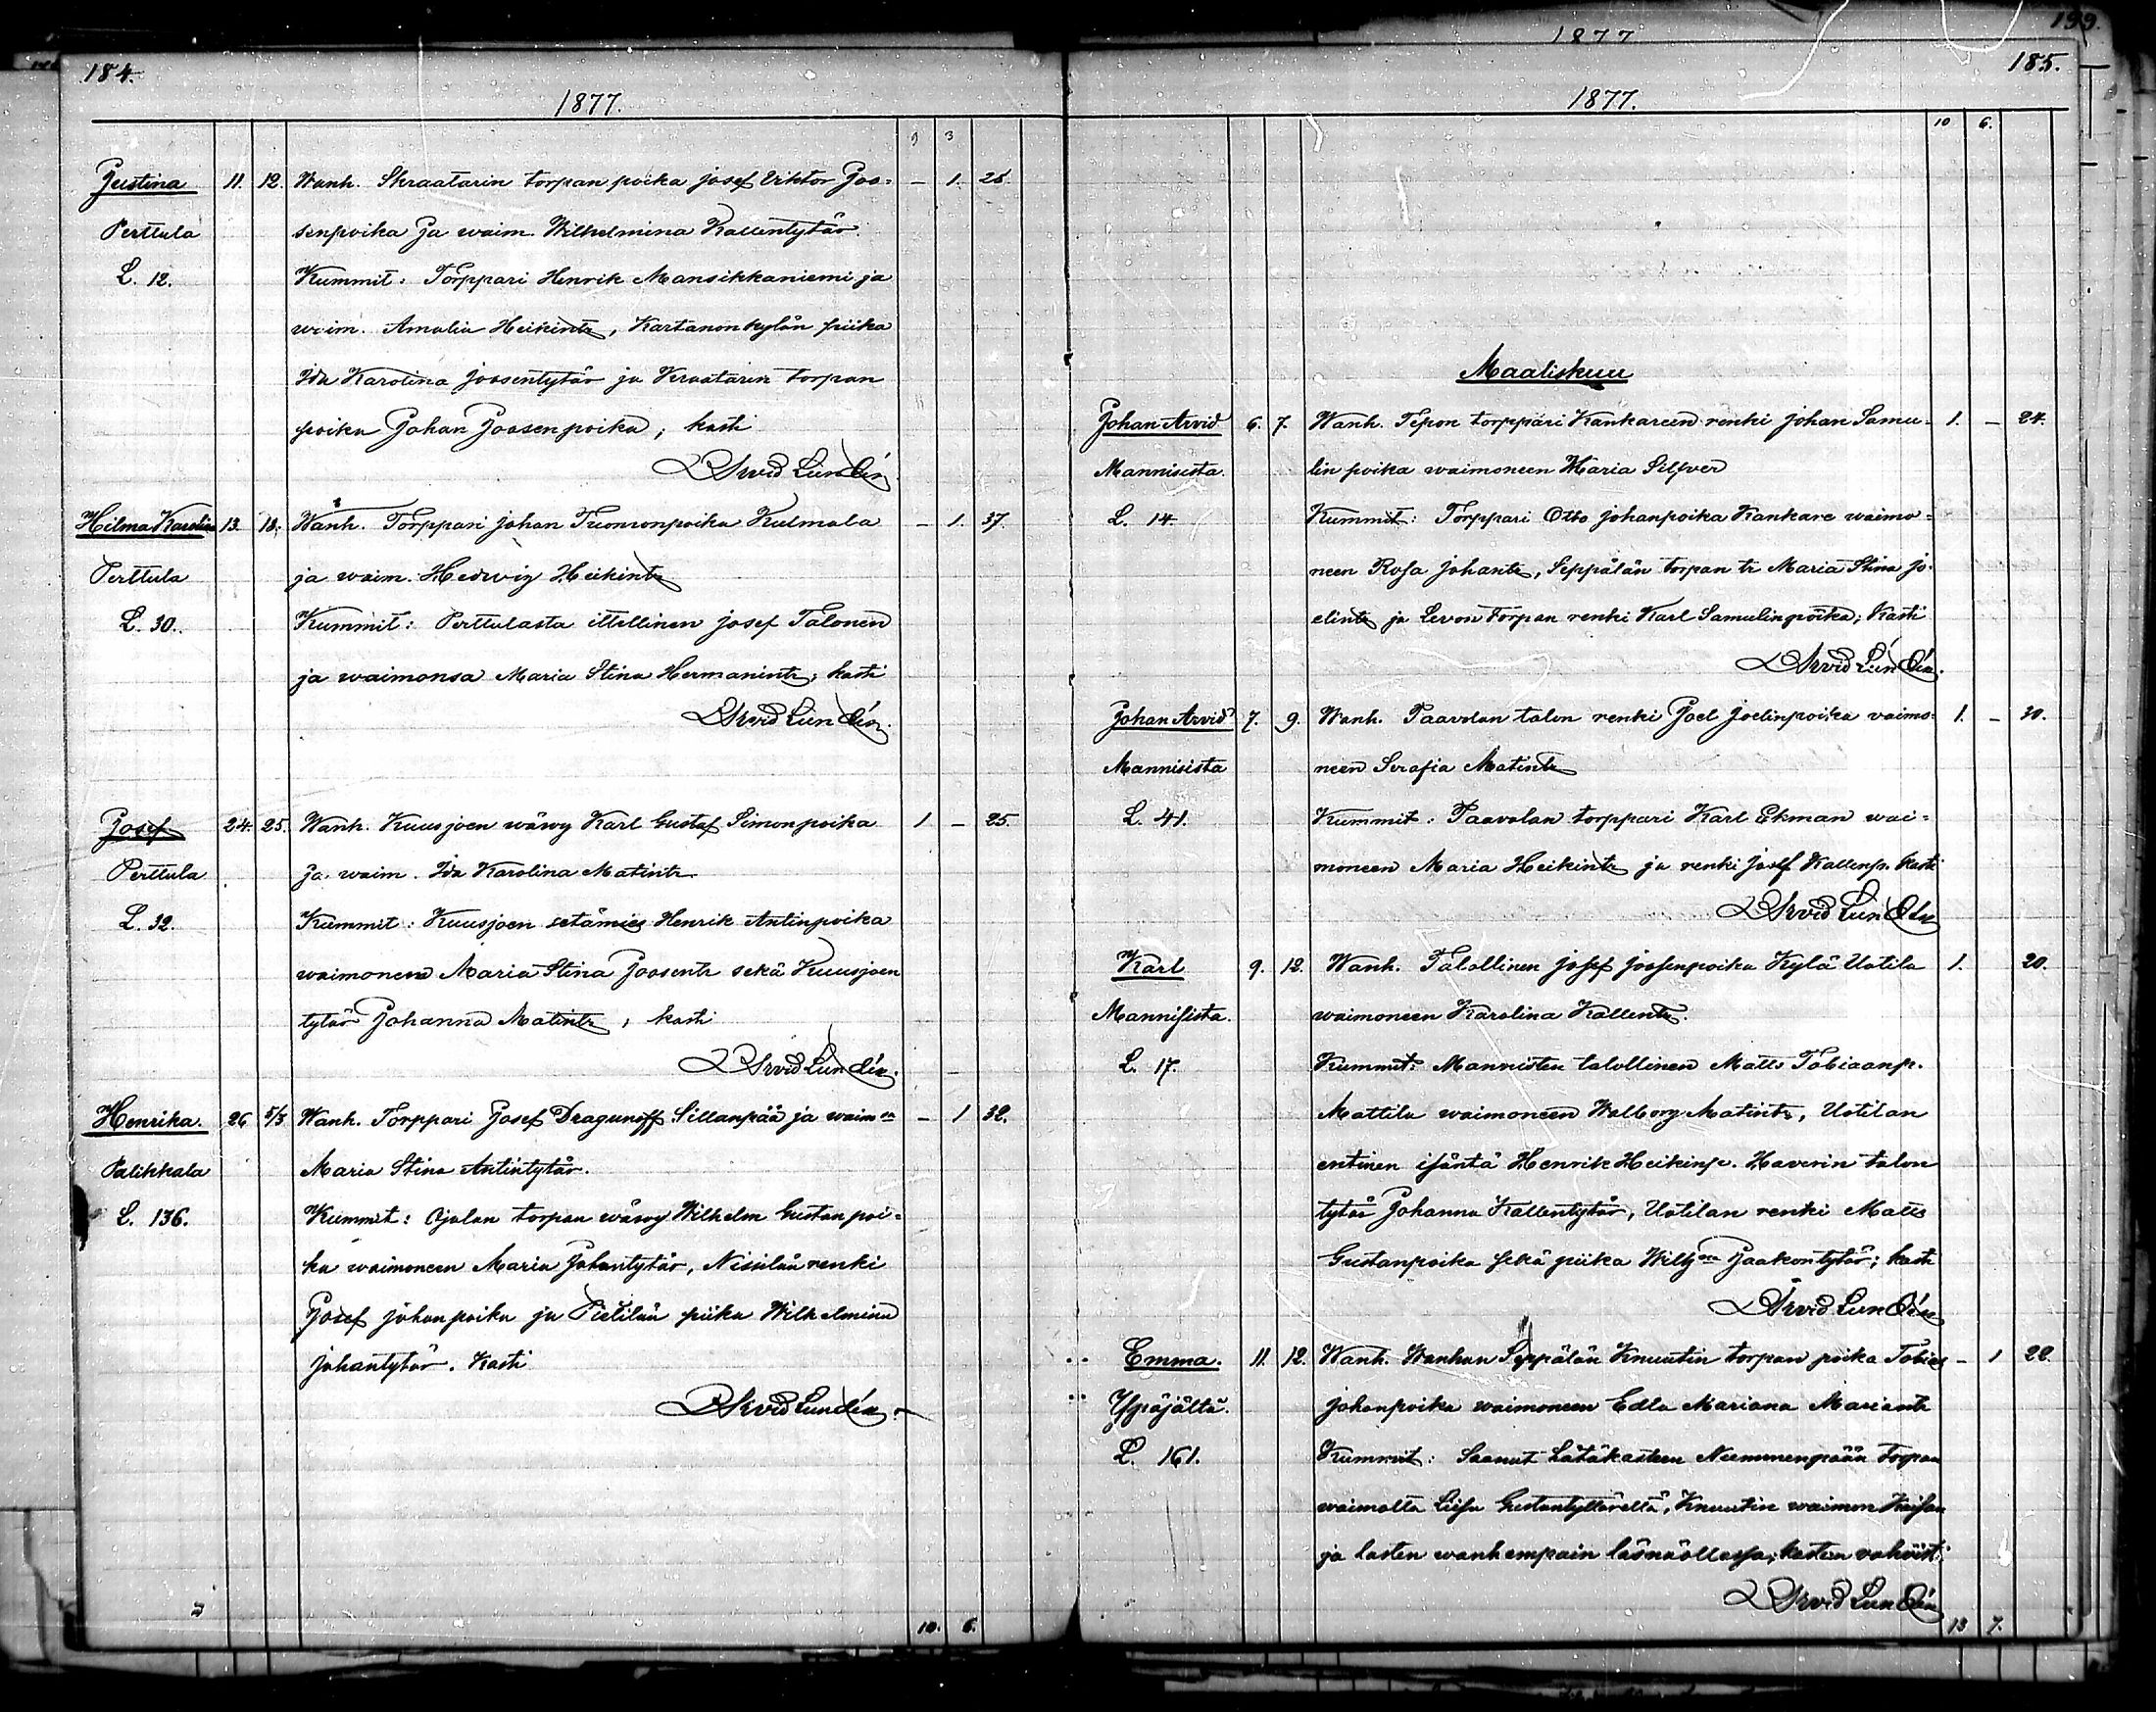 184.
1877.
9 3
Justina 11. 12. Wanh. Skraatarin torpan poika Josef Viktor Joo= – 1. 26.
Perttula senpoika ja waim. Wilhelmina Kallentytär.
L. 12. Kummit: Torppari Henrik Mansikkaniemi ja
waim. Amalia Heikintr, Kartanonkylän piika
Ida Karolina Joosentytär ja Kraatarin torpan
poika Johan Joosenpoika; kasti
Arvid Lundén.
Hilma Karolina 13. 18. Wanh. Torppari Johan Tuomonpoika Kulmala – 1. 37.
Perttula ja waim. Hedwig Heikintr
L. 30. Kummit: Perttulasta ittellinen Josef Talonen
ja waimonsa Maria Stina Hermanintr; kasti
Arvid Lundén.
Josef 24. 25. Wanh. Kuusjoen wäwy Karl Gustaf Simonpoika 1 – 25.
Perttula ja waim. Ida Karolina Matintr
L. 32. Kummit: Kuusjoen setämies Henrik Antinpoika
waimoneen Maria Stina Joosentr sekä Kuusjoen
tytär Johanna Matintr; kasti
Arvid Lundén.
Henrika. 26 5/3 Wanh. Torppari Josef Dragunoff Sillanpää ja waimsa – 1 32.
Palikkala Maria Stina Antintytär.
L. 136. Kummit: Ojalan torpan wäwy Wilhelm Gustanpoi=
ka waimoneen Maria Johantytär, Nissilän renki
Josef Johanpoika ja Pietilän piika Wilhelmina
Johantytär. Kasti
Arvid Lundén.
10. 6.
199.
1877
185.
1877.
10 6.
Maaliskuu
Johan Arvid 6. 7. Wanh. Tepon torppari Kankareen renki Johan Samu= 1. – 24.
Mannisista. lin poika waimoneen Maria Silfver
L. 14 Kummit: Torppari Otto Johanpoika Kankare waimo=
neen Rosa Johantr, Seppälän torpan tr Maria Stina Jo=
elintr ja Levon torpan renki Karl Samulinpoika; Kasti
Arvid Lundén.
Johan Arvid 7. 9. Wanh. Paavolan talon renki Joel Joelinpoika vaimo= 1. – 30.
Mannisista neen Serafia Matintr
L. 41. Kummit: Paavolan torppari Karl Ekman wai=
moneen Maria Heikintr ja renki Josef Kallenp. kasti
Arvid Lundén
Karl 9. 12. Wanh. Talollinen Josef Joosenpoika Kylä Uotila 1. 20.
Mannisista. waimoneen Karolina Kallentr.
L. 17. Kummit: Mannisten talollinen Matts Tobiaanp.
Mattila waimoneen Walborg Matintr, Uotilan
entinen isäntä Henrik Heikinp. Haverin talon
tytär Johanna Kallentytär, Uotilan renki Matts
Gustanpoika sekä piika Wilhna Jaakontytär; kasti
Arvid Lundén
Emma. 11. 12. Wanh. Wanhan Seppälän Knuutin torpan poika Tobias – 1 22.
Ypäjältä. Johanpoika waimoneen Edla Mariana Mariantr
L. 161. Kummit: Saanut hätäkasteen Niemmenpään torpan
waimolta Liisa Gustantyttäreltä, Knuutin waimon Kaisan
ja lasten wanhempain läsnäollessa; kasteen vahvisti
Arvid Lundén
13 7.